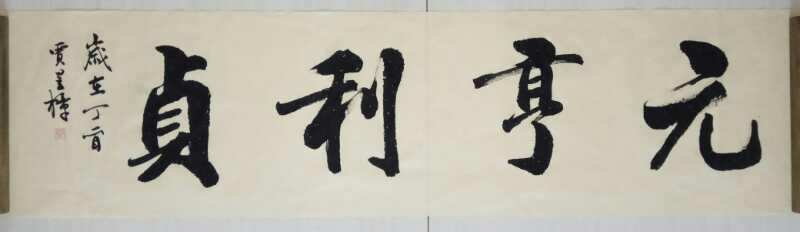 元亨利貞
歲在丁酉
賈